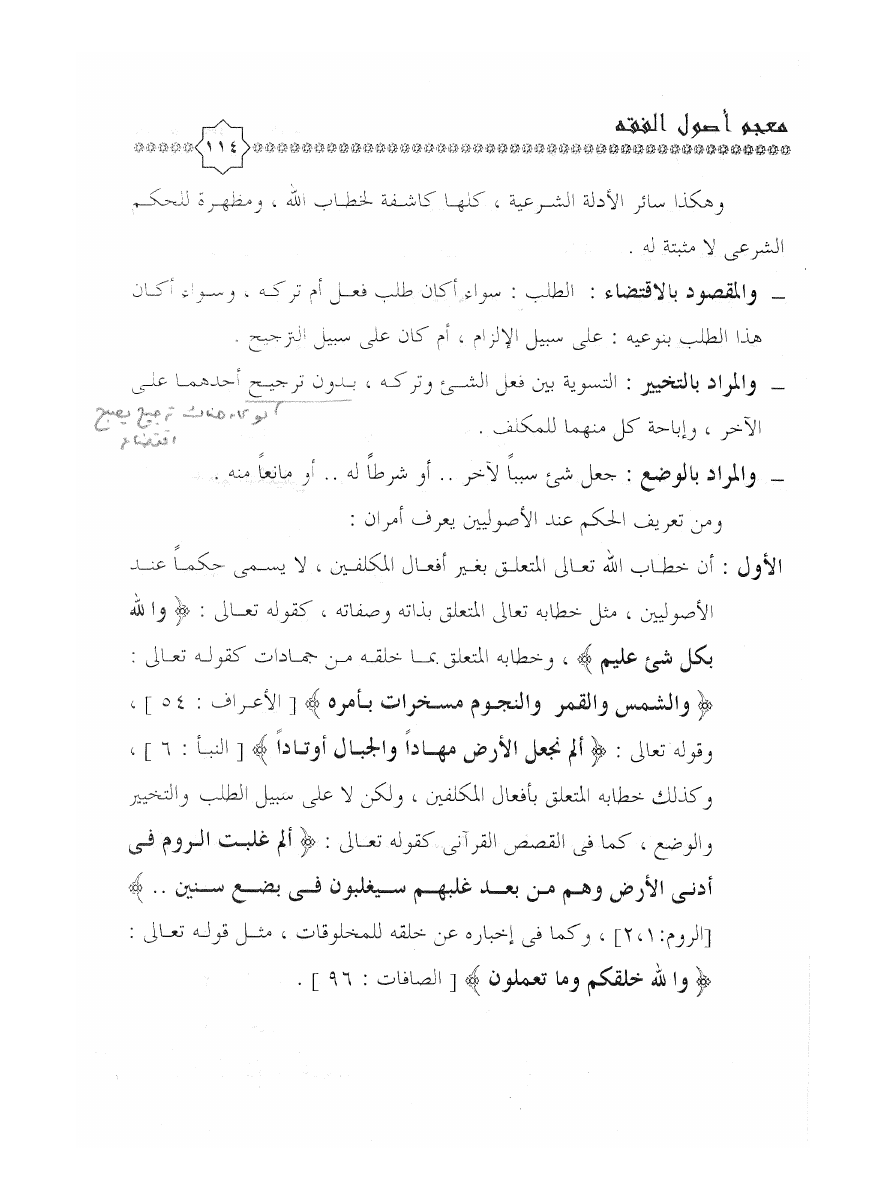 معجم أصول الفقه
١١٤
وهكذا سائر الأدلة الشرعية ، كلها كاشفة لخطاب الله ، ومظهرة للحكم
الشرعى لا مثبتة له .
ــ والمقصود بالاقتضاء : الطلب : سواء أكان طلب فعل أم تركه ، وسواء أكان
هذا الطلب بنوعيه : على سبيل الإلزام ، أم كان على سبيل الترجيح .
ــ والمراد بالتخيير : التسوية بين فعل الشئ وتركه ، بدون ترجيح أحدهما على
الآخر ، وإباحة كل منهما للمكلف .
لو كان هناك ترجيح يصبح
اقتضاء
ــ والمراد بالوضع : جعل شئ سبباً لآخر .. أو شرطاً له .. أو مانعاً منه .
ومن تعريف الحكم عند الأصوليين يعرف أمران :
الأول : أن خطاب الله تعالى المتعلق بغير أفعال المكلفين ، لا يسمى حكماً عند
الأصوليين ، مثل خطابه تعالى المتعلق بذاته وصفاته ، كقوله تعالى : ﴿ والله
بكل شئ عليم ﴾ ، وخطابه المتعلق بما خلقه من جمادات كقوله تعالى :
﴿ والشمس والقمر والنجوم مسخرات بأمره ﴾ [ الأعراف : ٥٤ ] ،
وقوله تعالى : ﴿ ألم نجعل الأرض مهاداً والجبال أوتاداً ﴾ [ النبأ : ٦ ] ،
وكذلك خطابه المتعلق بأفعال المكلفين ، ولكن لا على سبيل الطلب والتخيير
والوضع ، كما فى القصص القرآنى كقوله تعالى : ﴿ ألم غلبت الروم فى
أدنى الأرض وهم من بعد غلبهم سيغلبون فى بضع سنين .. ﴾
[الروم: ١،٢] ، وكما فى إخباره عن خلقه للمخلوقات ، مثل قوله تعالى :
﴿ والله خلقكم وما تعملون ﴾ [ الصافات : ٩٦ ] .